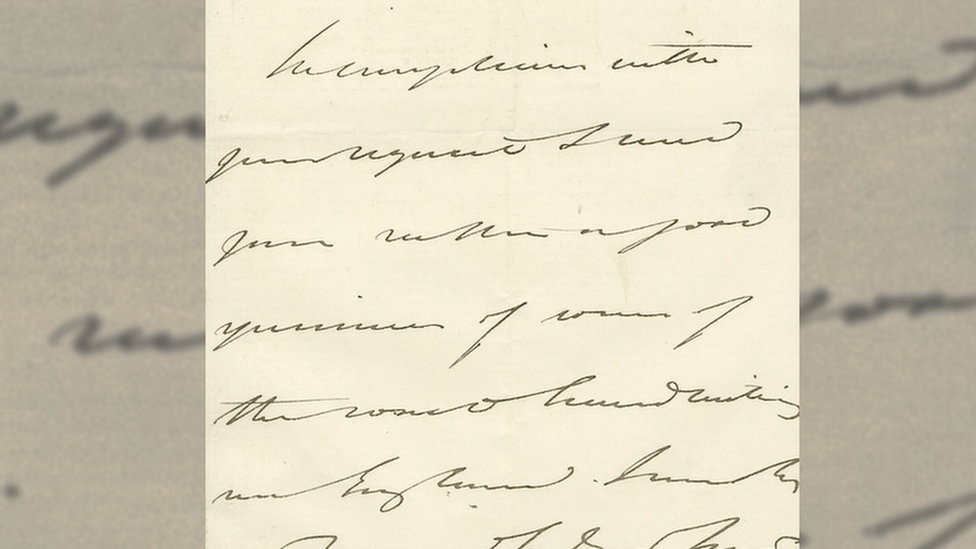 In compliance with
your request I send
you rather a good
specimen of some of
the worst handwriting
in England.